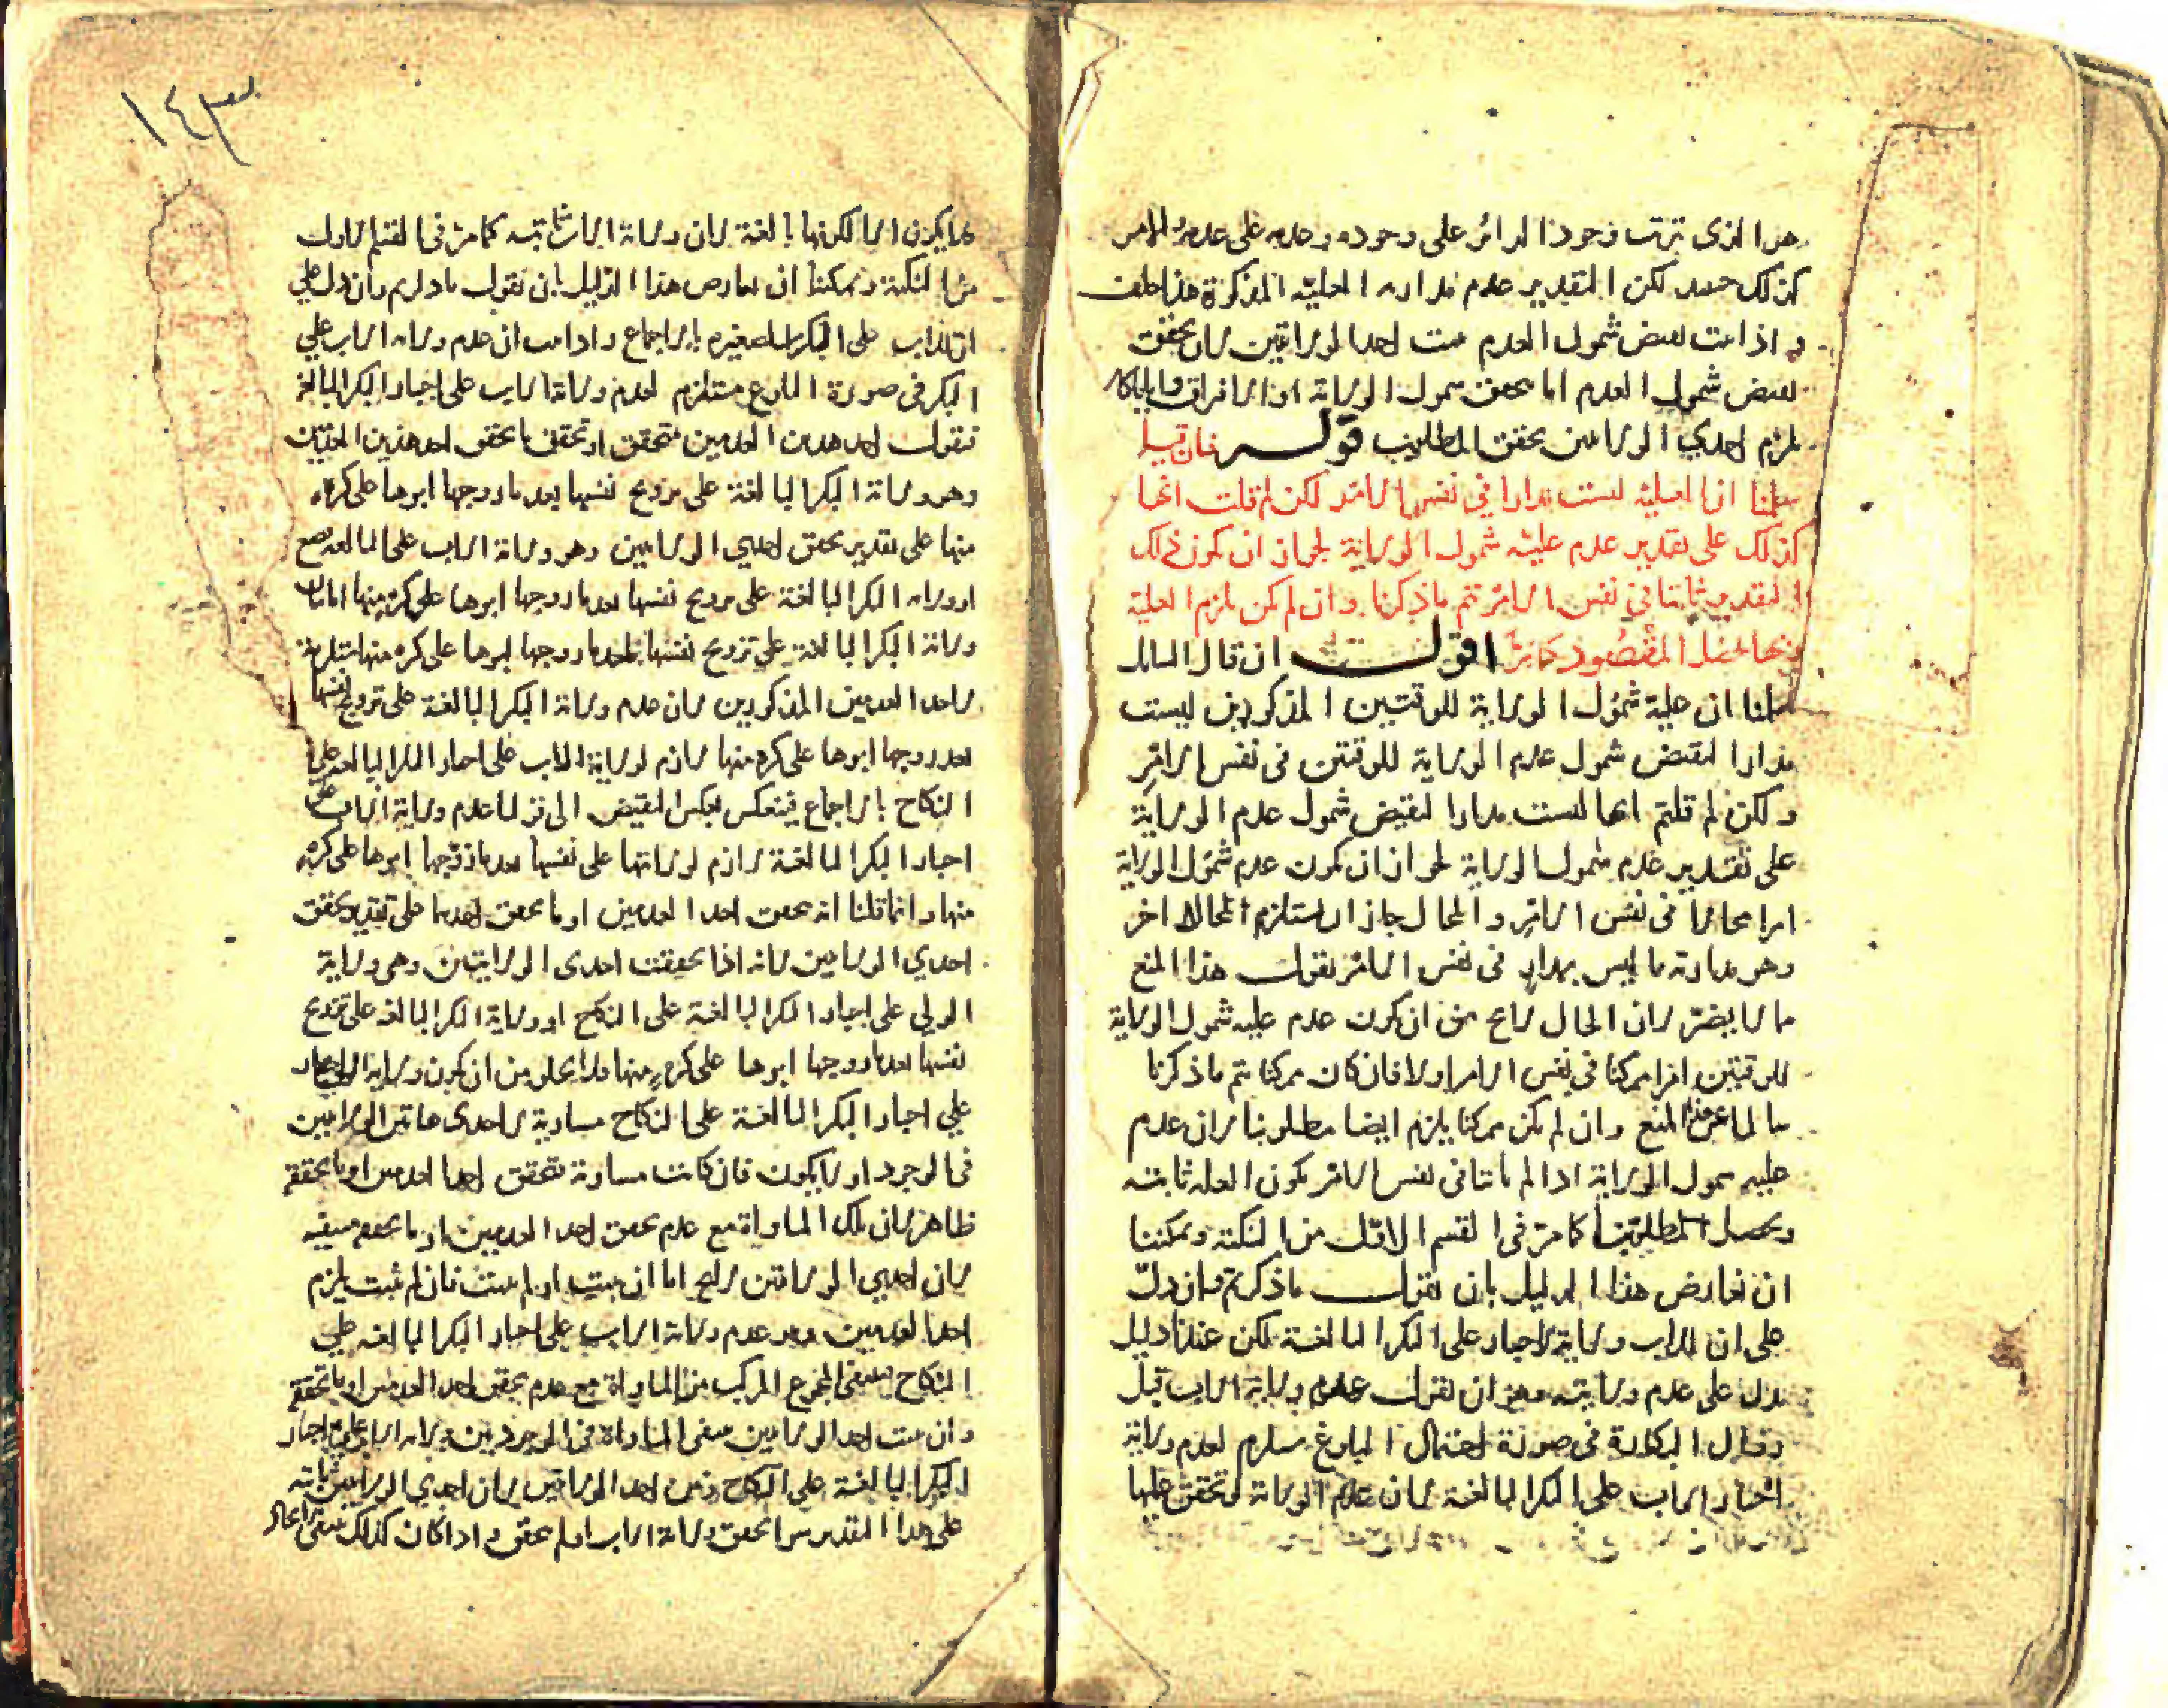 هو الذي ترتب وجود الدائر على وجوده وعدمه على عدمه والامر
كذلك حينئذ لكن التقدير عدم مداريه العلية المذكورة هذا خلف
واذا ثبت نقيض شمول العدم ثبت احد الولايتين لان تحقق
نقيض شمول العدم اما بتحقق شمول الولاية او الافتراق وايا ما كان
يلزم احدي الولايتين تحقق المطلوب قوله فان قيل
سلمنا ان العلية ليست مدارا في نفس الامر لكن لم قلت انها
كذلك على تقدير عدم علية شمول الولاية لجواز ان يكون ذلك
التقدير ثابتا في نفس الامر تم ما ذكرنا وان لم يكن يلزم العلية
المقصود كما مر اقول ان قال السائل
سلمنا ان علية شمول الولاية للوقتين المذكورين ليست
مدارا لنقيض شمول عدم الولاية للوقتين في نفس الامر
ولكن لم قلتم انها ليست مدارا لنقيض شمول عدم الولاية
على تقدير عدم شمول الولاية لجواز ان يكون عدم شمول الولاية
امرا محالا في نفس الامر والمحال جاز ان يستلزم المحال الاخر
وهو مداريه ما ليس بمدار في نفس الامر نقول هذا المنع
مما لا يضر لان الحال لا يخ من ان يكون عدم علية شمول الولاية
للوقتين امرا ممكنا في نفس الامر او لا فان كان ممكنا يتم ما ذكرنا
سالما عن هذا المنع وان لم يكن ممكنا يلزم ايضا مطلوبنا لان عدم
علية شمول الولاية اذا لم يكن ثابتا في نفس الامر يكون العلة ثابتة
ويحصل المطلوب كما مر في القسم الاول من النكتة ويمكننا
ان نعارض هذا الدليل بان نقول ما ذكرتم وان دل
على ان للاب ولاية الاجبار على البكر البالغة لكن عندنا دليل
يدل على عدم ولايته وهو ان نقول عدم ولاية الاب قبل
زوال البكارة في صورة احتمال البلوغ مستلزم لعدم ولاية
اجبار الاب على البكر البالغة لان عدم الولاية لو تحقق عليها
١٤٣
لا يكون الا لكونها بالغة لان ولاية الاب ثابتة كما مر في القسم الاول
من النكتة ويمكننا ان نعارض هذا الدليل بان نقول ما ذكرتم وان دل على
البكر الصغيرة بالاجماع واذا ثبت ان عدم ولاية الاب علي
البكر في صورة البلوغ مستلزم لعدم ولاية الاب على اجبار البكر البالغة
فنقول احد هذين العدمين متحقق او تحقق ما تحقق احد هذين العدمين
وهو ولاية البكر البالغة على تزويج نفسها بعد ما زوجها ابوها على كره
منها على تقدير تحقق احدي الولايتين وهو ولاية الاب على البالغة
او ولاية البكر البالغة على تزويج نفسها بعد ما زوجها ابوها على كره منها
ولاية البكر البالغة علي تزويج نفسها بعد ما زوجها ابوها على كره منها مستلزمة
لاحد العدمين المذكورين لان عدم ولاية البكر البالغة على تزويج نفسها
بعد ما زوجها ابوها على كره منها لازم لولاية الاب على اجبار البكر البالغة علي
النكاح بالاجماع فينعكس بعكس النقيض الى قولنا عدم ولاية الاب على
اجبار البكر البالغة لازم لولايتها على نفسها بعد ما زوجها ابوها على كره
منها وانما قلنا انه تحقق احد العدمين او ما تحقق احدهما على تقدير تحقق
احدي الولايتين لانه اذا تحققت احدى الولايتين وهي ولاية
الولي على اجبار البكر البالغة على النكاح او ولاية البكر البالغة على تزويج
نفسها بعد ما زوجها ابوها على كره منها فلا يخلو من ان يكون ولاية الاب
علي اجبار البكر البالغة على النكاح مساوية لاحدى هاتين الولايتين
في الوجود او لا يكون فان كانت مساوية فتحقق احد العدمين او ما تحققه
ظاهر لان تلك المساواة مع عدم تحقق احد العدمين او ما تحققه منتفية
لان احدي الولايتين لا يخ اما ان يثبت او لم يثبت فان لم يثبت يلزم
احد العدمين وهو عدم ولاية الاب على اجبار البكر البالغة علي
النكاح فينتفي المجموع المركب من المساواة مع عدم تحقق احد العدمين او ما تحققه
وان ثبت احد الولايتين ينتفي المساواة في الوجود بين ولاية الاب على اجبار
البكر البالغة علي النكاح وبين احد الولايتين لان احدي الولايتين ثابتة
على هذا التقدير سوا تحقق ولاية الاب او لم يتحقق واذا كان كذلك